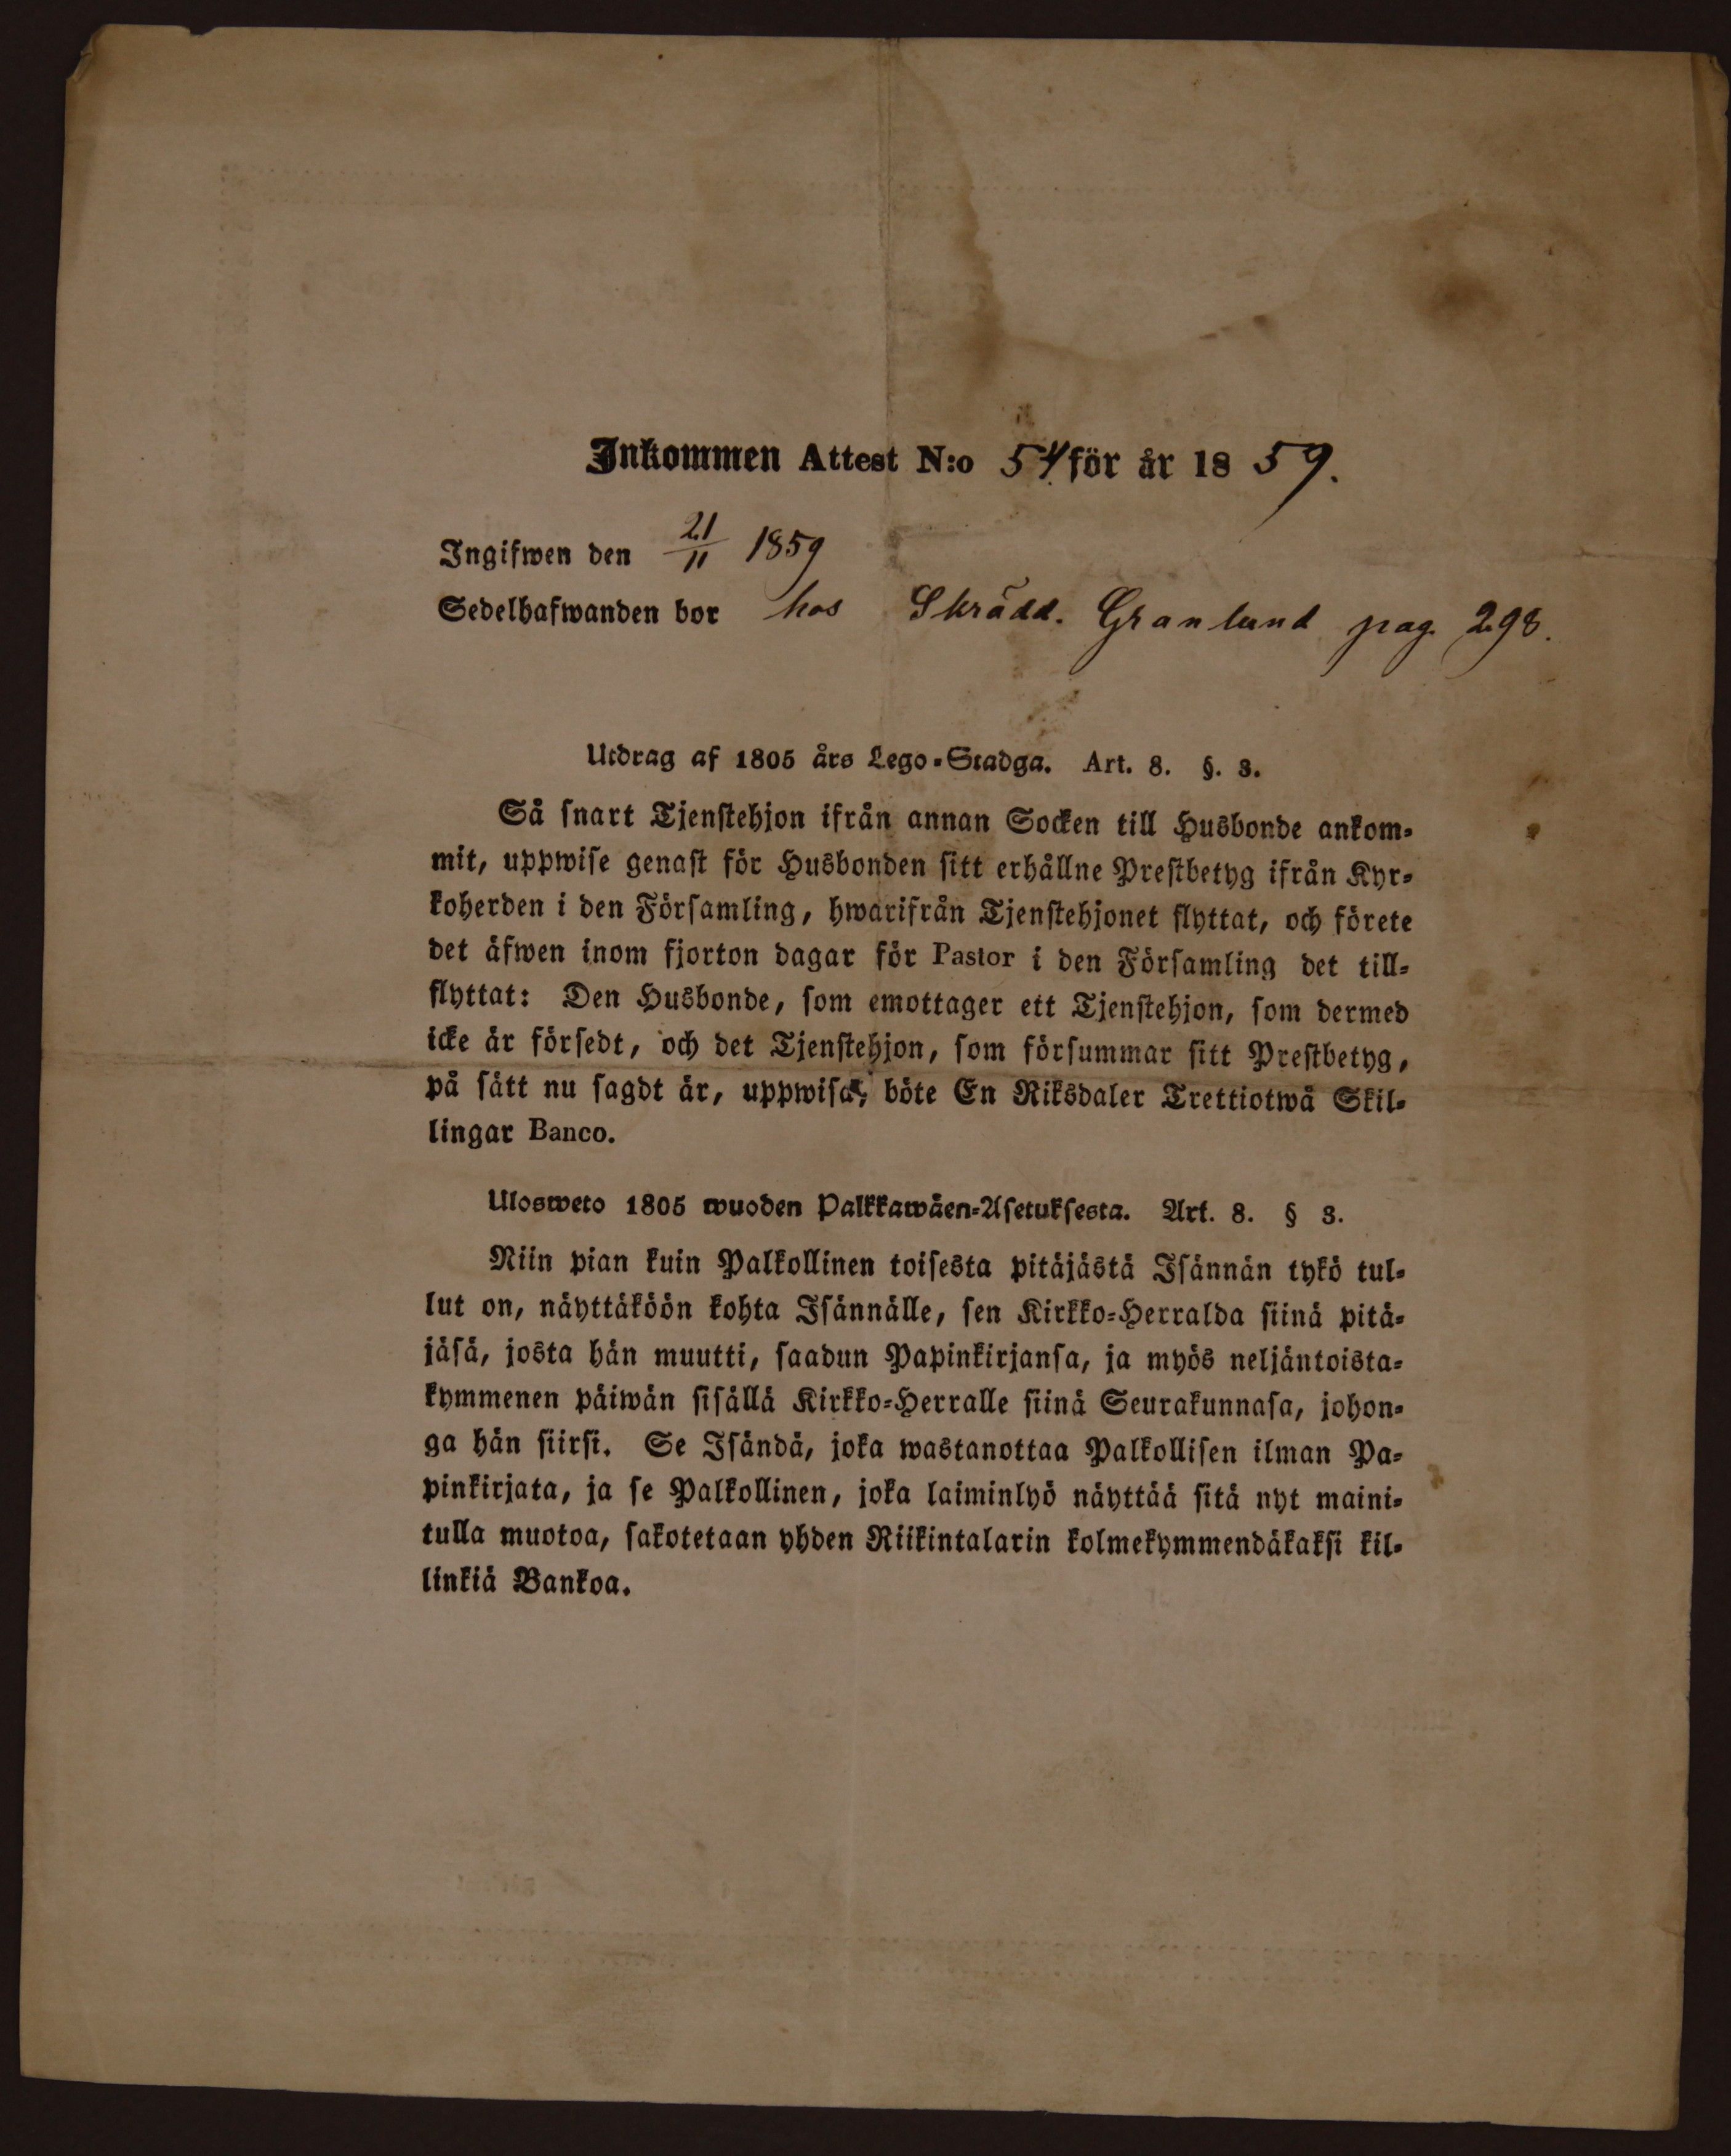 Inkommen Attest N:o 54 för år 1859.
Ingifwen den 21/11 1859
Sedelhafwanden bor hos Skrädd. Granlund pag. 298.
Utdrag af 1805 års Lego-Stadga. Art. 8. §. 3.
Så snart Tjenstehjon ifrån annan Socken till Husbonde ankom-
mit, uppwise genast för Husbonden sitt erhållne Prestbetyg ifrån Kyr-
koherden i den Församling, hwarifrån Tjenstehjonet flyttat, och förete
det äfwen inom fjorton dagar för Pastor i den Församling det till-
flyttat: Den Husbonde, som emottager ett Tjenstehjon, som dermed
icke är försedt, och det Tjenstehjon, som försummar sitt Prestbetyg,
på sätt nu sagdt är, uppwisa, böte En Riksdaler Trettiotwå Skil-
lingar Banco.
Ulosweto 1805 wuoden Palkkawäen-Asetuksesta. Art. 8. § 3.
Niin pian kuin Palkollinen toisesta pitäjästä Isännän tykö tul-
lut on, näyttäköön kohta Isännälle, sen Kirkko-Herralda siinä pitä-
jäsä, josta hän muutti, saadun Papinkirjansa, ja myös neljäntoista-
kymmenen päiwän sisällä Kirkko-Herralle siinä Seurakunnasa, johon-
ga hän siirsi. Se Isändä, joka wastanottaa Palkollisen ilman Pa-
pinkirjata, ja se Palkollinen, joka laiminlyö näyttää sitä nyt maini-
tulla muotoa, sakotetaan yhden Riikintalarin kolmekymmendäkaksi kil-
linkiä Bankoa.